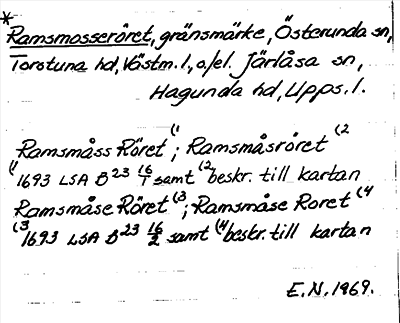 *
Ramsmosseröret, gränsmärke, Österunda sn,
Torstuna hd, Västm. l., o/el. Järlåsa sn,
Hagunda hd, Upps. l.
Ramsmåss Röret (1; Ramsmåsröret (2
(1 1693 LSA B23 16/1 samt (2 beskr. till kartan
Ramsmåse Röret (3; Ramsmåse Roret (4
(3 1693 LSA B23 16/2 samt (4 beskr. till kartan
E.N. 1969.